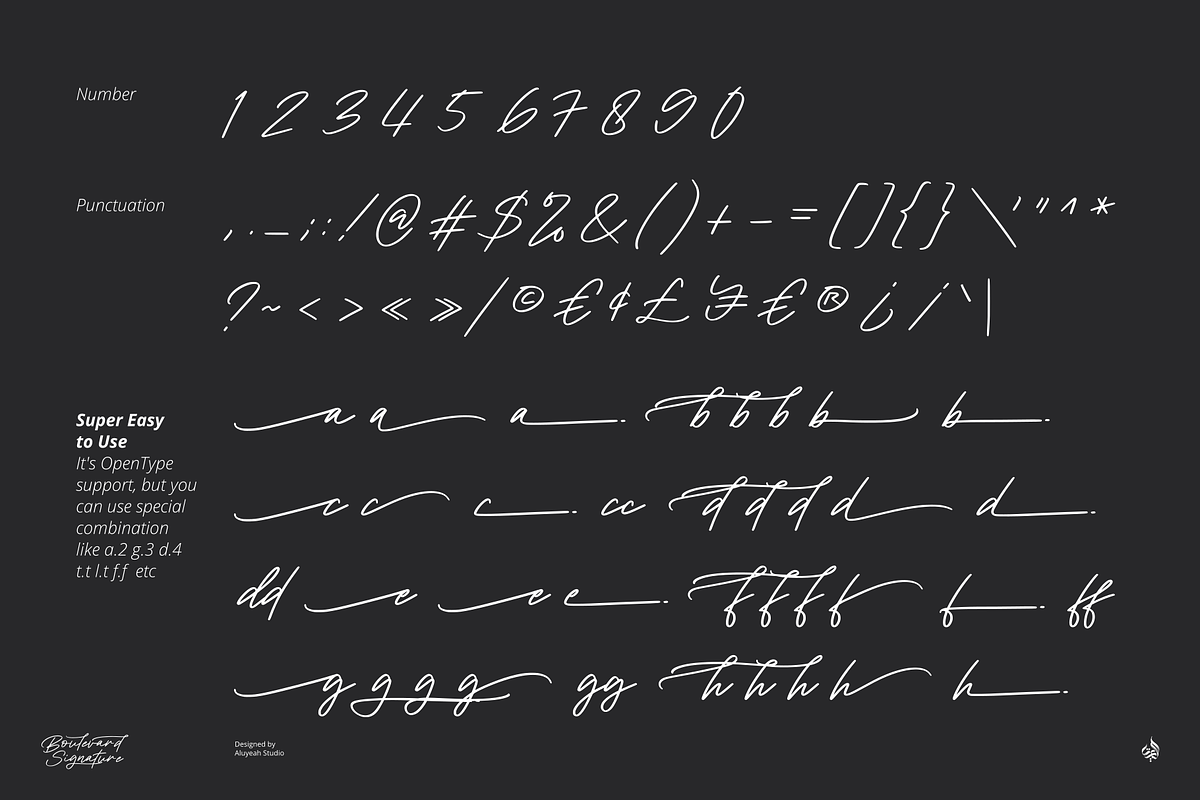 Number
1 2 3 4 5 6 7 8 9 0
Punctuation
, . · _ ; : ! @ # $ % & ( ) + - = [ ] { } \ ' " ^ *
? ~ < > « » / © € ¢ £ ¥ € ® ¿ / ` |
Super Easy
to Use
It's OpenType
support, but you
can use special
combination
like a.2 g.3 d.4
t.t l.t f.f etc
a a a b b b b b
c c c cc d d d d d
dd e e e f f f f f ff
g g g g gg h h h h h
Boulevard
Signature
Designed by
Aluyeah Studio